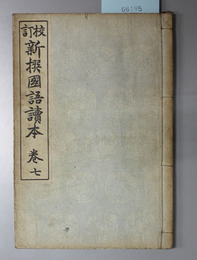 校訂
新撰國語讀本 卷七
66195